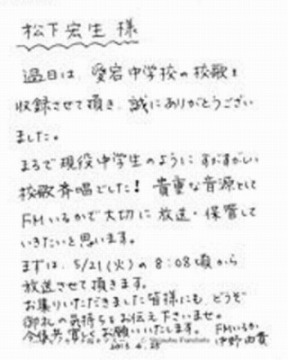 松下宏生 様
過日は、愛宕中学校の校歌を
収録させて頂き、誠にありがとうござい
ました。
まるで現役中学生のように すがすがしい
校歌斉唱でした! 貴重な音源として
FMいるかで大切に放送・保管して
いきたいと思います。
まずは、5/21(火)の 8:08頃から
放送させて頂きます。
お集りいただきました皆様にも、どうぞ
御礼の気持ちをお伝え下さいませ。
今後共宜しくお願いいたします。 FMいるか